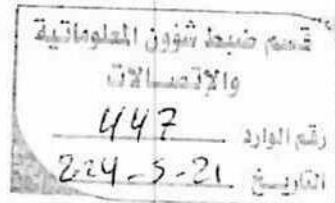 قسم ضبط شؤون المعلوماتية
والإتصالات
رقم الوارد 447
التاريخ 224-5-21